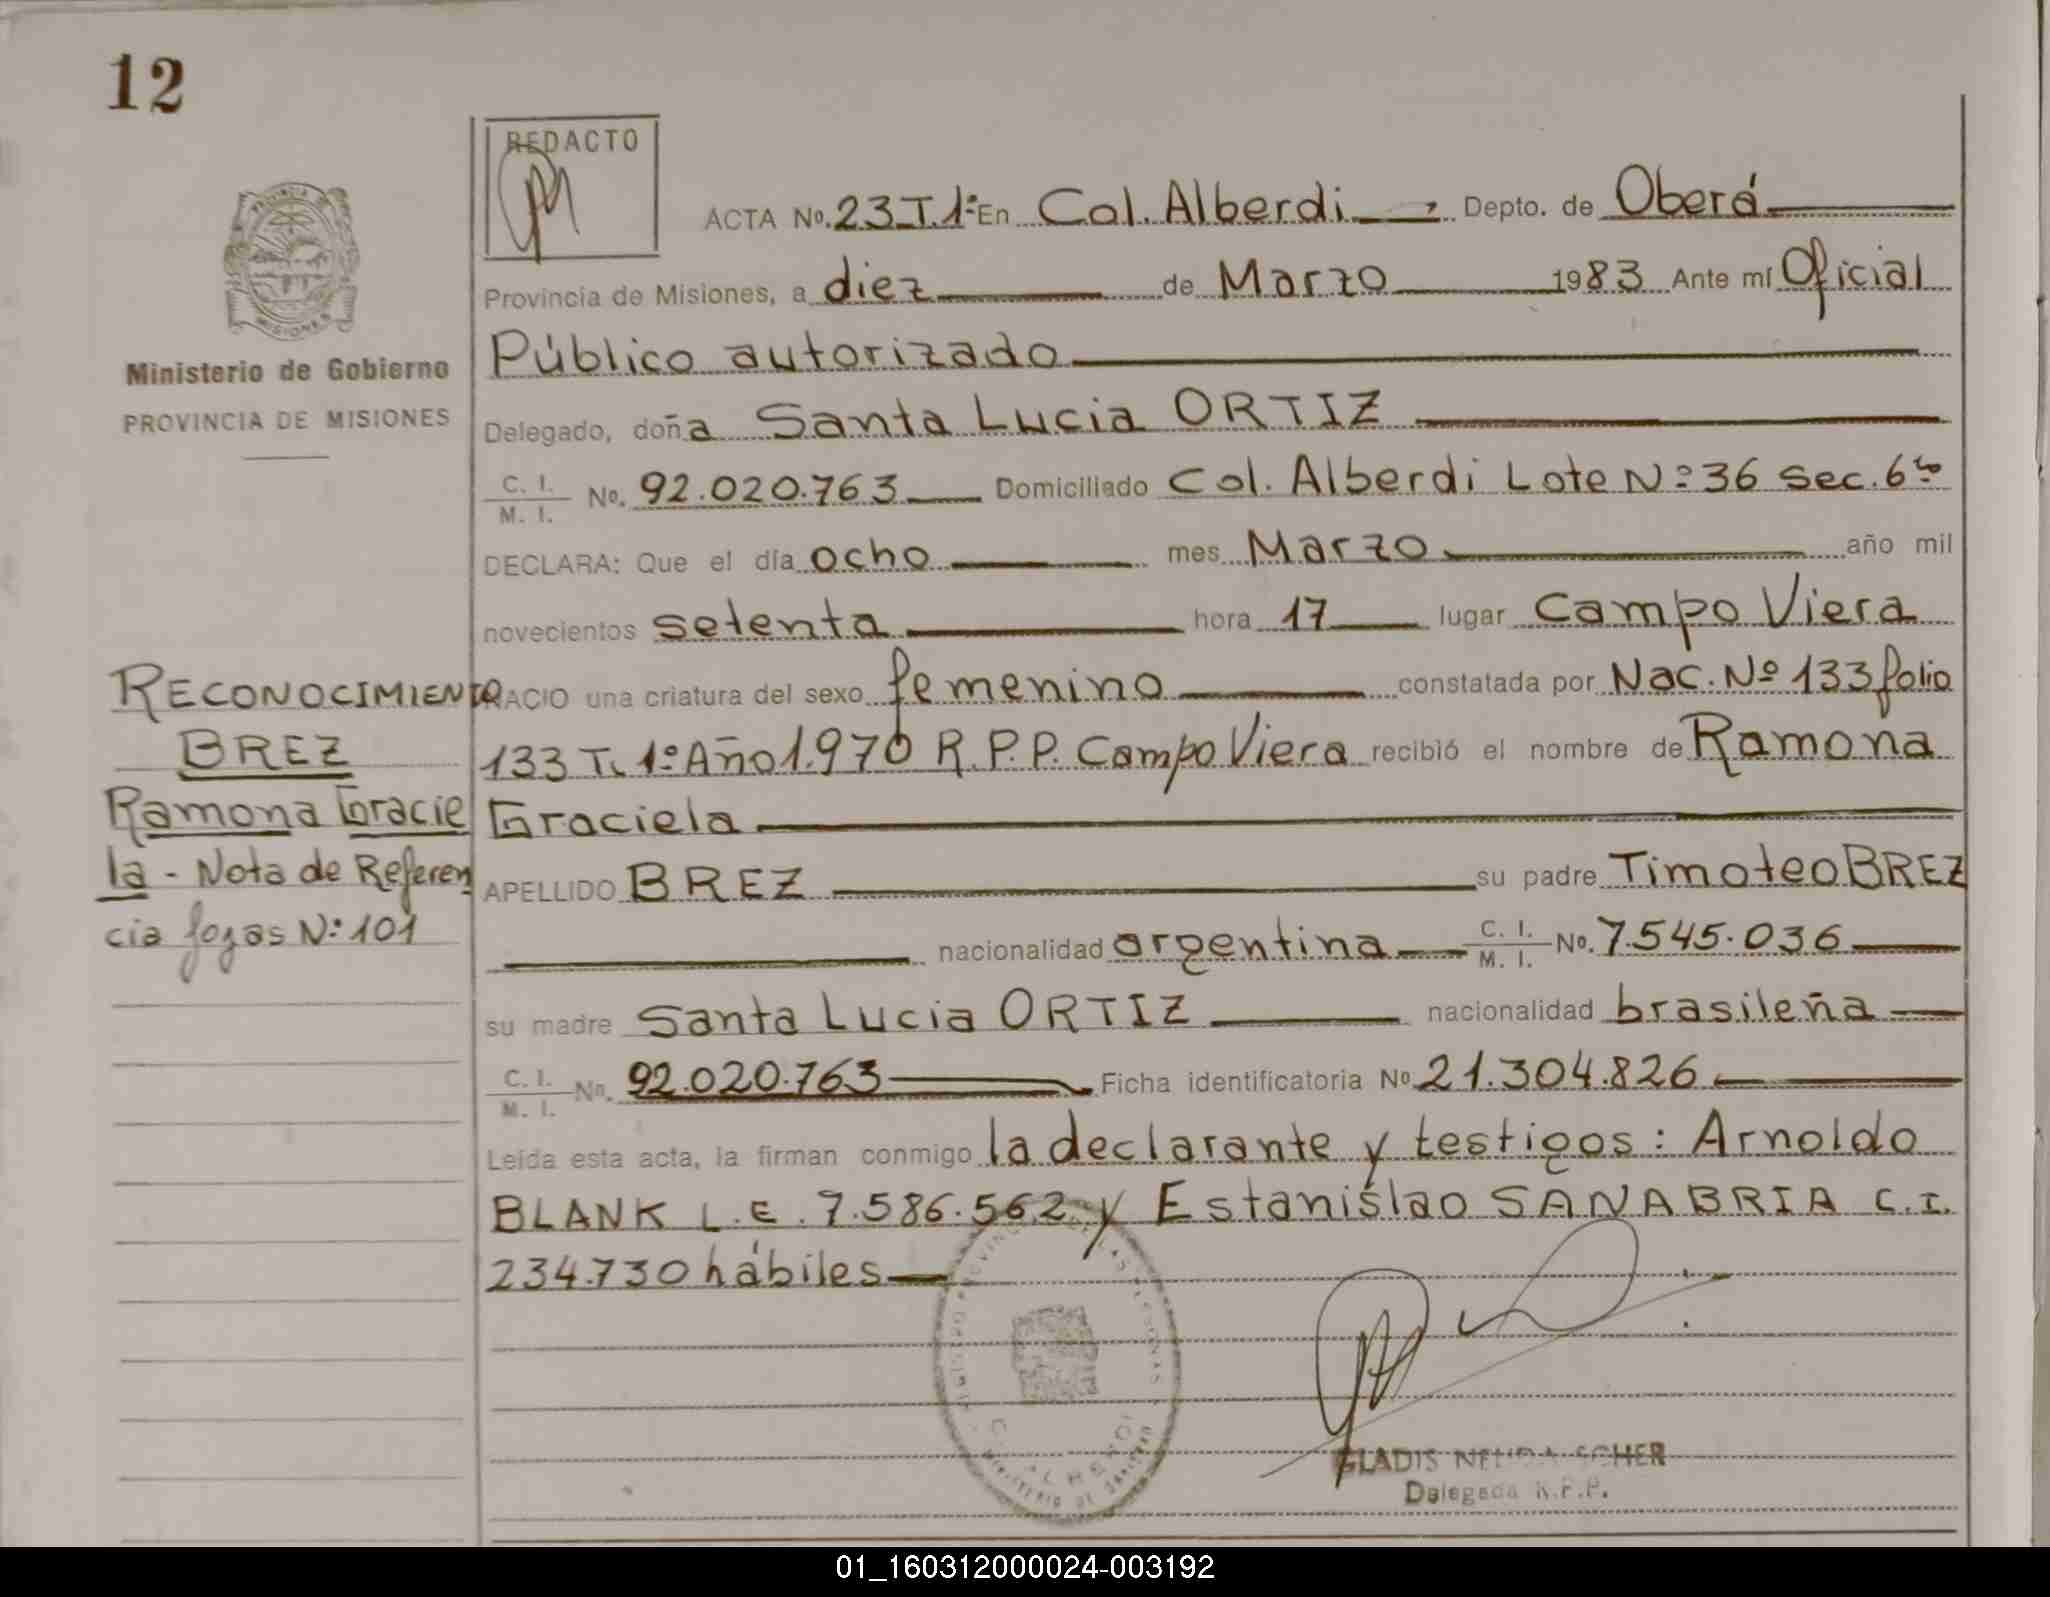 12
REDACTO
ACTA No. 23 T. 1º En Col. Alberdi Depto. de Oberá
Provincia de Misiones, a diez de Marzo 1983 Ante mí Oficial
Público autorizado
PROVINCIA DE
MISIONES
Ministerio de Gobierno
PROVINCIA DE MISIONES
Delegado, doña Santa Lucia ORTIZ
C. I.
M. I. No. 92.020.763 Domiciliado Col. Alberdi Lote Nº 36 Sec. 6ta
DECLARA: Que el día ocho mes Marzo año mil
novecientos setenta hora 17 lugar Campo Viera
NACIO una criatura del sexo femenino constatada por Nac. Nº 133 folio
133 T. 1º Año 1.970 R.P.P. Campo Viera recibió el nombre de Ramona
Graciela
APELLIDO BREZ su padre Timoteo BREZ
nacionalidad argentina C. I.
M. I. No. 7.545.036
su madre Santa Lucia ORTIZ nacionalidad brasileña
C. I.
M. I. No. 92.020.763 Ficha identificatoria No 21.304.826
Leída esta acta, la firman conmigo la declarante y testigos: Arnoldo
BLANK L.E. 7.586.562 y Estanislao SANABRIA C.I.
234.730 hábiles
RECONOCIMIENTO
BREZ
Ramona Gracie
la - Nota de Referen
cia fojas Nº 101
GLADIS NELIDA SCHER
Delegada R.P.P.
01_160312000024-003192